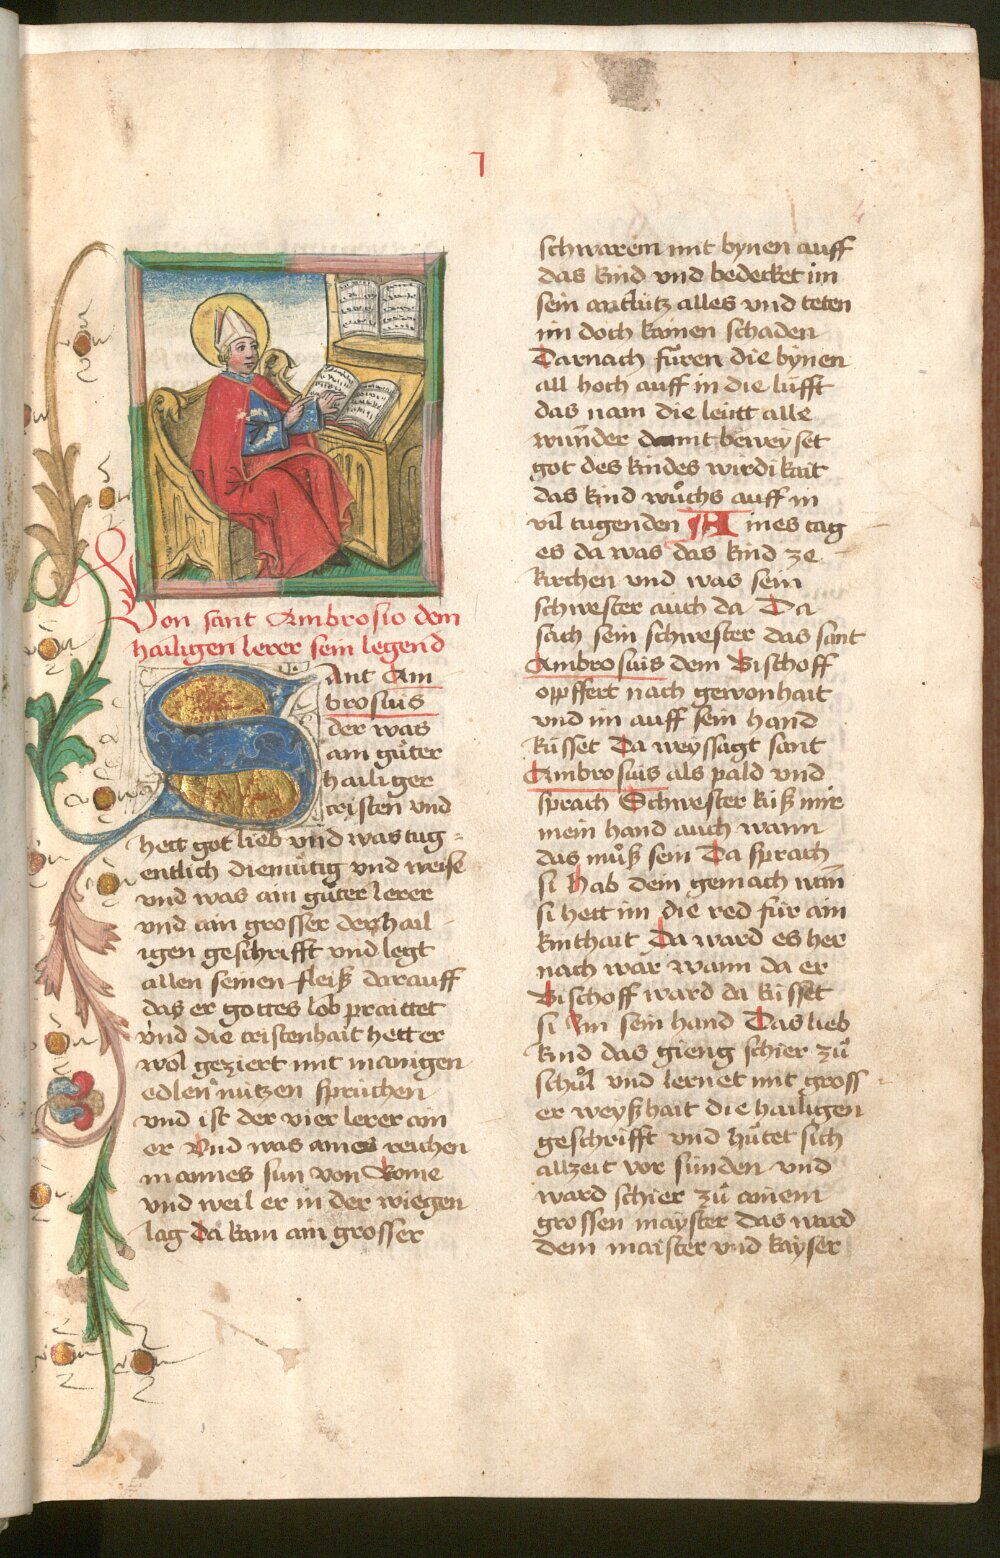 1
Von sant Ambrosio dem
hailigen lerer sein legend
Sant Am
brosius
der was
ain gůter
hailiger
cristen und
hett got lieb vnd was tug
entlich diemütig vnd weise
vnd was ain gůter lerer
vnd ain grosser der hail
igen geschrifft vnd legt
allen seinen fleiß darauff
das er gottes lob praittet
vnd die cristenhait hett er
wol geziert mit manigen
edlen nützen sprüchen
vnd ist der vier lerer ain
er Vnd was aines reichen
mannes sun von Rome
vnd weil er in der wiegen
lag Da kam ain grosser
schwarem mit bynen auff
das kind vnd bedecket im
sein antlütz alles vnd teten
im doch kainen schaden
Darnach füren die bynen
all hoch auff in die lüfft
das nam die leütt alle
wunder damit beweyset
got des kindes wirdikait
das kind wůchs auff in
vil tugenden Aines tag
es da was das kind ze
kirchen vnd was sein
schwester auch da Da
sach sein schwester das sant
Ambrosius dem Bischoff
opffert nach gewonhait
vnd im auff sein hand
küsset Da weyssagt sant
Ambrosius als pald vnd
sprach Schwester küß mir
mein hand auch wann
das můß sein Da sprach
si Hab dein gemach wan̄
si hett im die red für ain
kinthait Da ward es her
nach war wann da er
Bischoff ward da küsset
si Im sein hand Das lieb
kind das gieng schier zů
schůl vnd lernet mit gross
er weyßhait die hailigen
geschrifft vnd hůtet sich
allzeit vor sünden vnd
ward schier zů ainem
grossen mayster das ward
dem maister vnd kayser